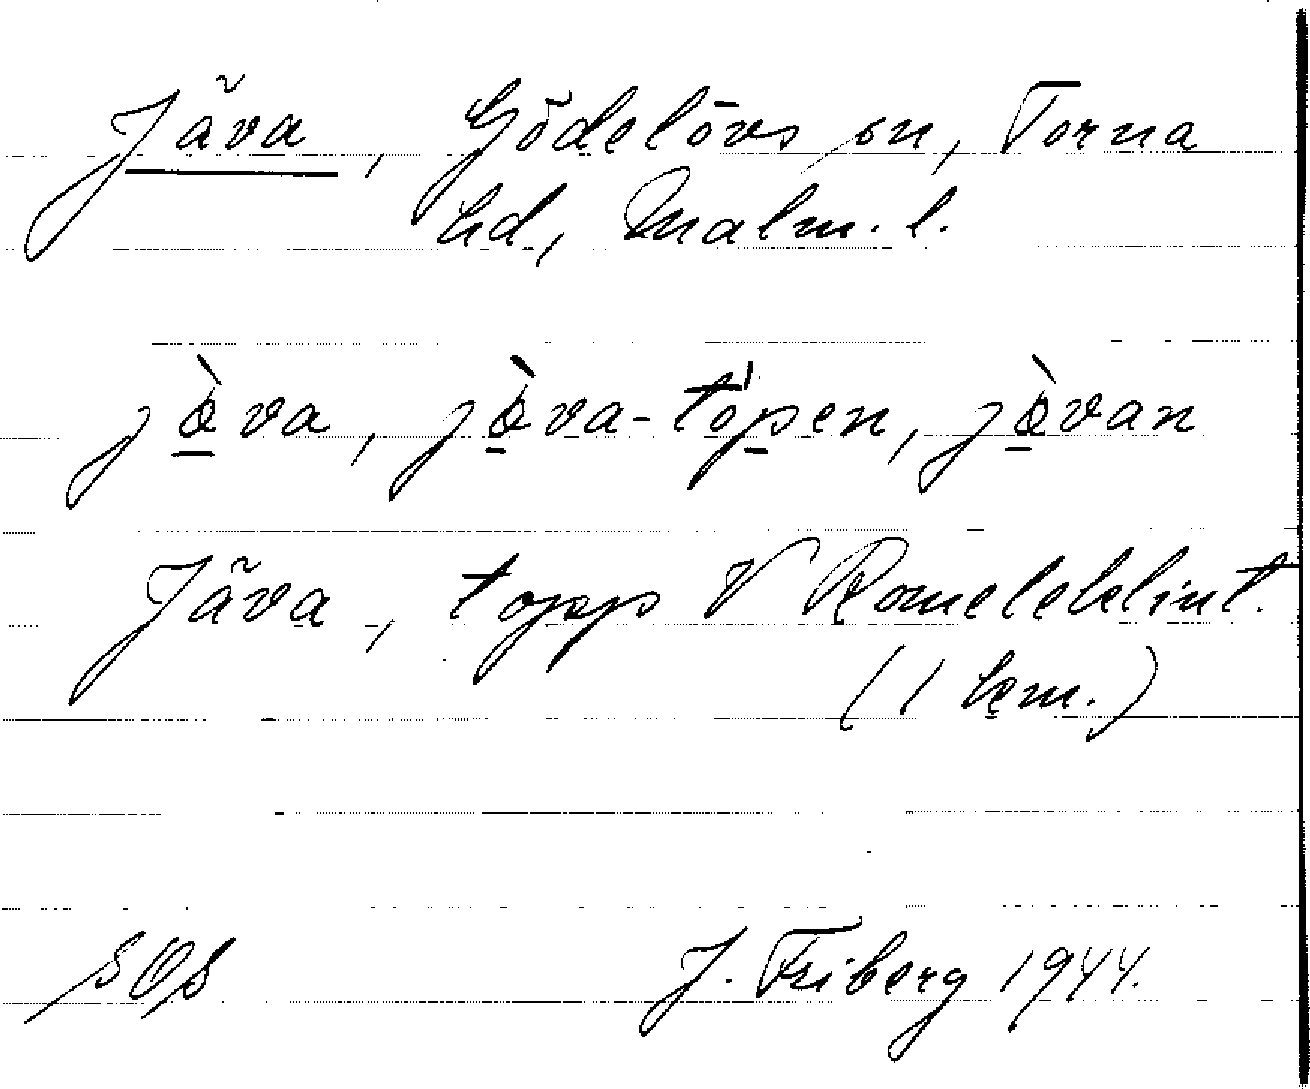 Jäva, Gödelövs sn, Torna
hd, Malm. l.
jòva, jòva-tópen, jòvan
Jäva, topp V Romeleklint.
(1 km.)
J. Friberg 1944.